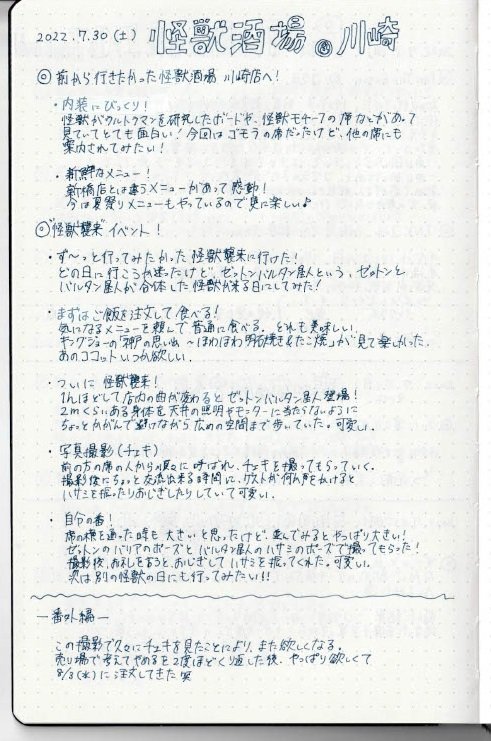 2022.7.30(土) 怪獣酒場@川崎
◎前から行きたかった怪獣酒場 川崎店へ!
・内装にびっくり!
怪獣がウルトラマンを研究したボードや、怪獣モチーフの席などがあって
見ていてとても面白い!今回はゴモラの席だったけど、他の席にも
案内されてみたい!
・新鮮なメニュー!
新橋店とは違うメニューがあって感動!
今は夏祭りメニューもやっているので更に楽しい♪
◎"怪獣襲来"イベント!
・ず〜っと行ってみたかった怪獣襲来に行けた!
どの日に行こうか迷ったけど、ゼットンバルタン星人という、ゼットンと
バルタン星人が合体した怪獣が来る日にしてみた!
・まずはご飯を注文して食べる!
気になるメニューを頼んで普通に食べる。どれも美味しい。
キングジョーの「神戸の思い出〜ほわほわ明石焼き&たこ焼」が見て楽しかった。
あのココットいつか欲しい。
・ついに怪獣襲来!
1hほどして店内の曲が変わるとゼットンバルタン星人登場!
2mくらいある身体を天井の照明やモニターに当たらないように
ちょっとかがんで避けながら広めの空間まで歩いていた。可愛い。
・写真撮影(チェキ)
前の方の席の人から順々に呼ばれ、チェキを撮ってもらっていく。
撮影後にちょっと交流出来る時間に、ゲストが何か声をかけると
ハサミを振ったりおじぎしたりしていて可愛い。
・自分の番!
席の横を通った時も大きいと思ったけど、並んでみるとやっぱり大きい!
ゼットンのバリアのポーズとバルタン星人のハサミのポーズで撮ってもらった!
撮影後、お礼を言うと、おじぎしてハサミを振ってくれた。可愛い。
次は別の怪獣の日にも行ってみたい!!
―番外編―
この撮影で久々にチェキを見たことにより、また欲しくなる。
売り場で考えてやめるを2度ほどくり返した後、やっぱり欲しくて
8/3(水)に注文してきた笑